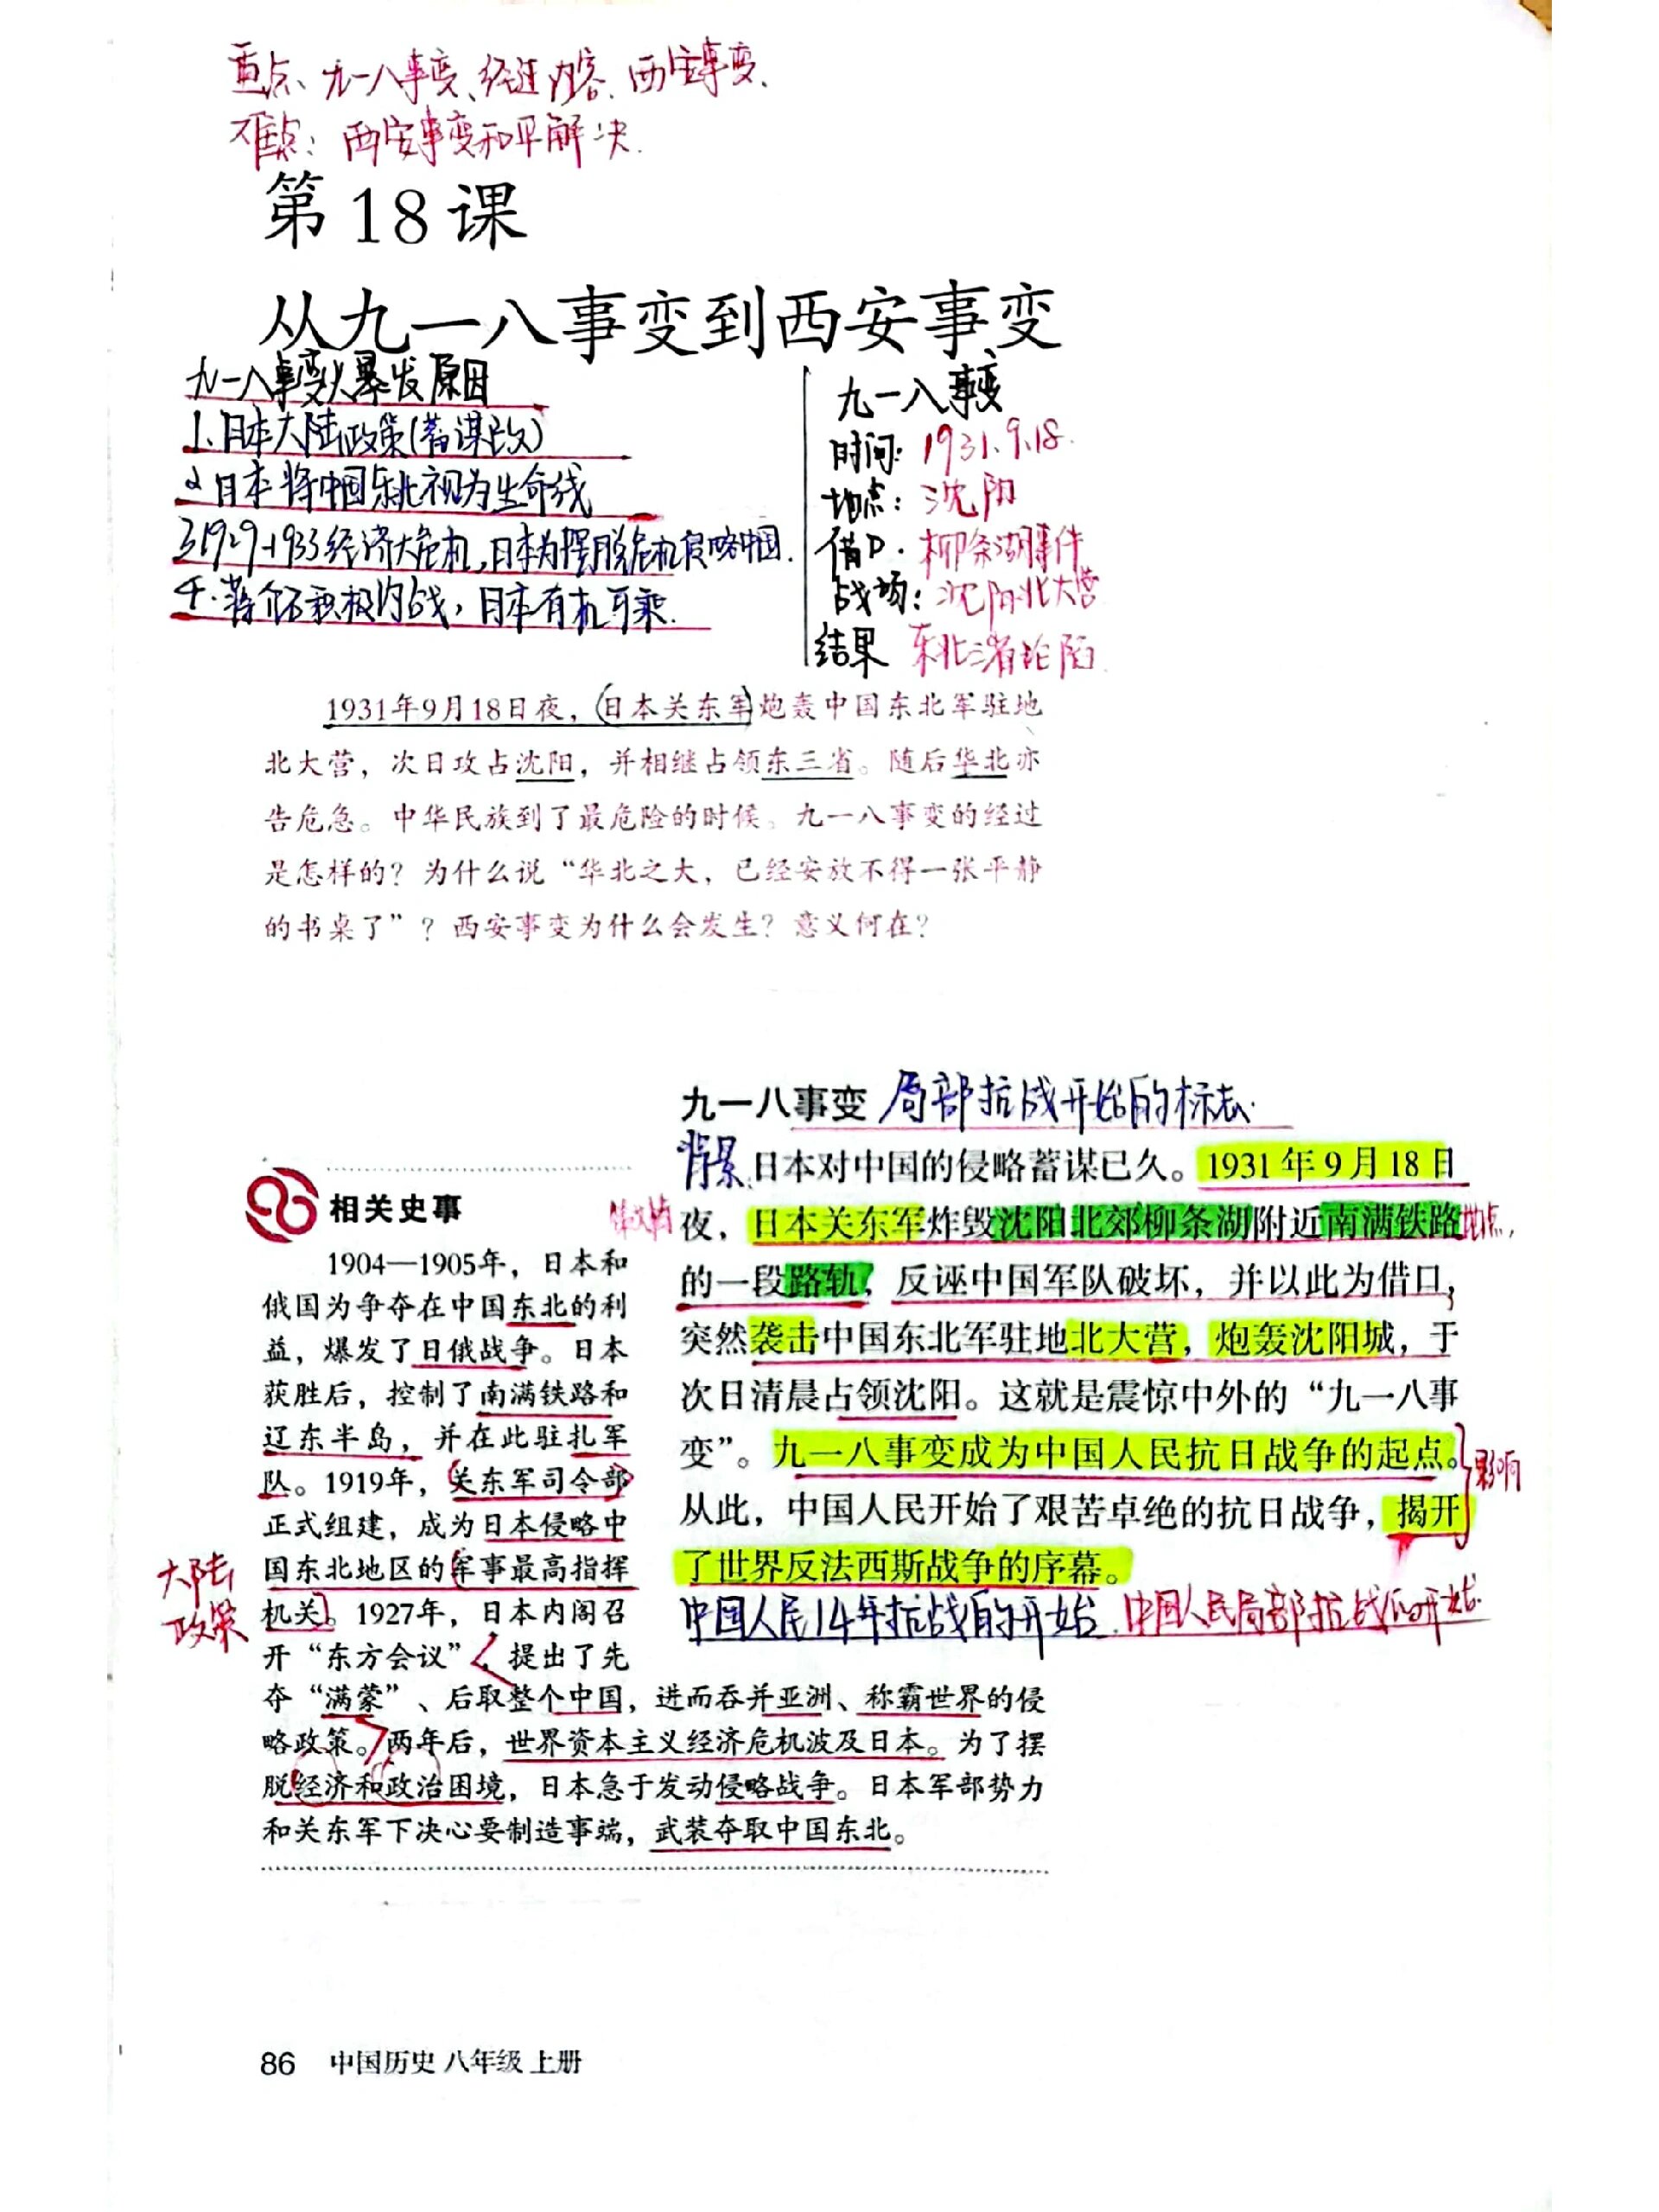 重点、九一八事变、经过内容、西安事变、
难点：西安事变和平解决.
第 18 课
从九一八事变到西安事变
九一八事变爆发原因
1、日本大陆政策(蓄谋已久)
2 日本将中国东北视为生命线
3 1929-1933经济大危机,日本为摆脱危机侵略中国.
4.蒋介石积极内战,日本有机可乘.
九一八事变
时间:1931.9.18.
地点:沈阳
借口.柳条湖事件
战场:沈阳北大营
结果 东北三省沦陷.
1931年9月18日夜，日本关东军炮轰中国东北军驻地
北大营，次日攻占沈阳，并相继占领东三省。随后华北亦
告危急。中华民族到了最危险的时候。九一八事变的经过
是怎样的？为什么说“华北之大，已经安放不得一张平静
的书桌了”？西安事变为什么会发生？意义何在？
相关史事
1904—1905年，日本和
俄国为争夺在中国东北的利
益，爆发了日俄战争。日本
获胜后，控制了南满铁路和
辽东半岛，并在此驻扎军
队。1919年，关东军司令部
正式组建，成为日本侵略中
国东北地区的军事最高指挥
机关。1927年，日本内阁召
开“东方会议”，提出了先
夺“满蒙”、后取整个中国，进而吞并亚洲、称霸世界的侵
略政策。两年后，世界资本主义经济危机波及日本。为了摆
脱经济和政治困境，日本急于发动侵略战争。日本军部势力
和关东军下决心要制造事端，武装夺取中国东北。
大陆
政策
九一八事变 局部抗战开始的标志.
背景、日本对中国的侵略蓄谋已久。1931年9月18日
夜，日本关东军炸毁沈阳北郊柳条湖附近南满铁路地点,
的一段路轨，反诬中国军队破坏，并以此为借口，
突然袭击中国东北军驻地北大营，炮轰沈阳城，于
次日清晨占领沈阳。这就是震惊中外的“九一八事
变”。九一八事变成为中国人民抗日战争的起点。
影响
从此，中国人民开始了艰苦卓绝的抗日战争，揭开
了世界反法西斯战争的序幕。
中国人民14年抗战的开始.中国人民局部抗战的开始.
86 中国历史 八年级 上册